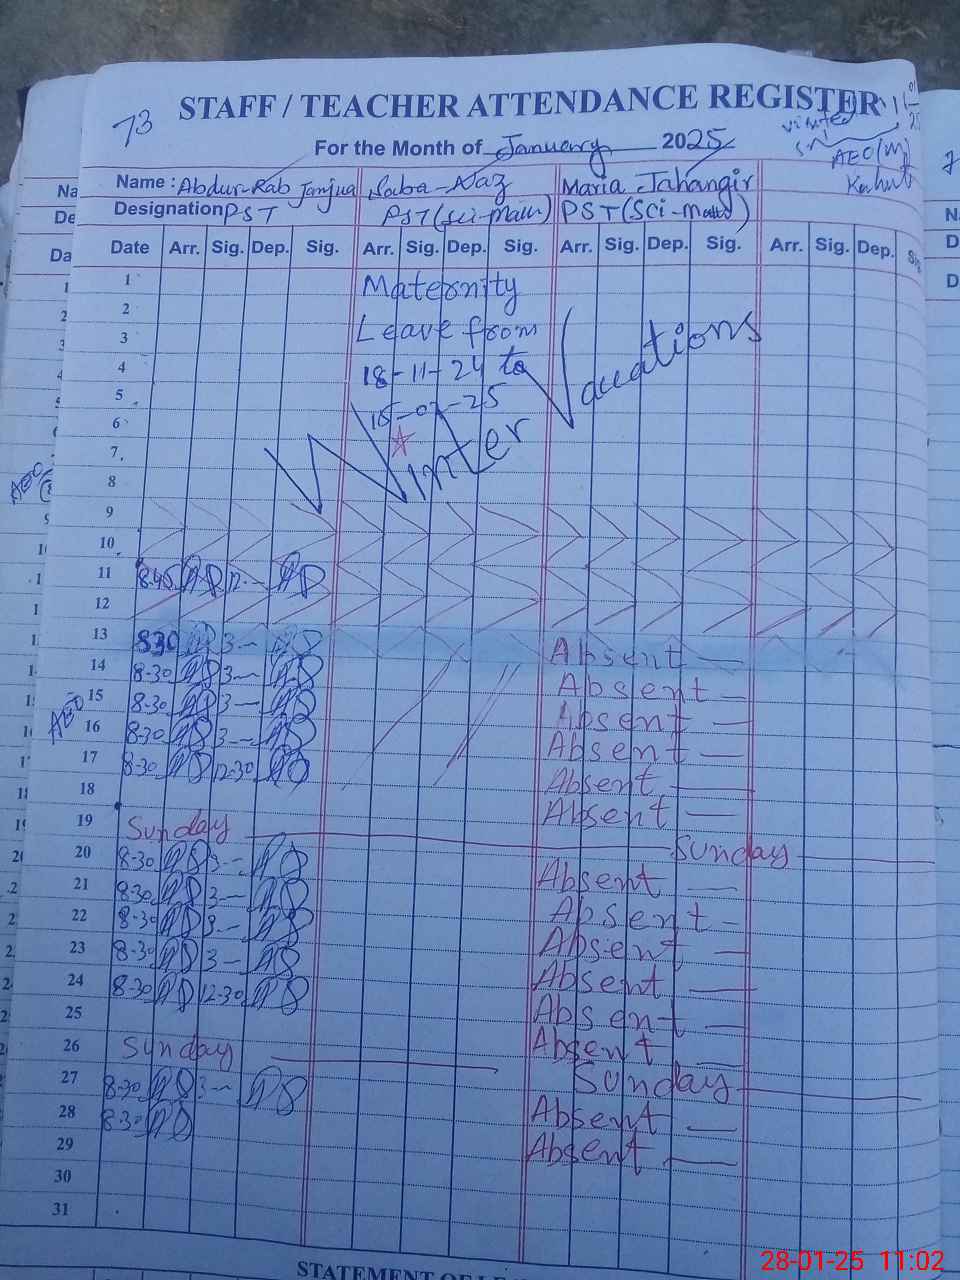 STAFF / TEACHER ATTENDANCE REGISTER
73
visited
AEO(M)
For the Month of January 2025
Name : Abdur-Rab Janjua Saba-Naz Maria Jahangir
Designation PST PST(Sci-Math) PST(Sci-Math)
Date Arr. Sig. Dep. Sig. Arr. Sig. Dep. Sig. Arr. Sig. Dep. Sig. Arr. Sig. Dep.
1 Maternity
2
3 Leave from
4 18-11-24 to
5
6
7
8
Winter Vacations
9
10
11 8-45 12-
12
13 830 3- Absent
14 8-30 3- Absent
15 8-30 3- Absent
AEO
16 8-30 3- Absent
17 8-30 12-30 Absent
18 Absent
19 Sunday Sunday
20 8-30 3- Absent
21 8-30 3- Absent
22 8-30 3- Absent
23 8-30 3- Absent
24 8-30 12-30 Absent
25 Absent
26 Sunday Sunday
27 8-30 3- Absent
28 8-30 Absent
29
30
31
28-01-25 11:02